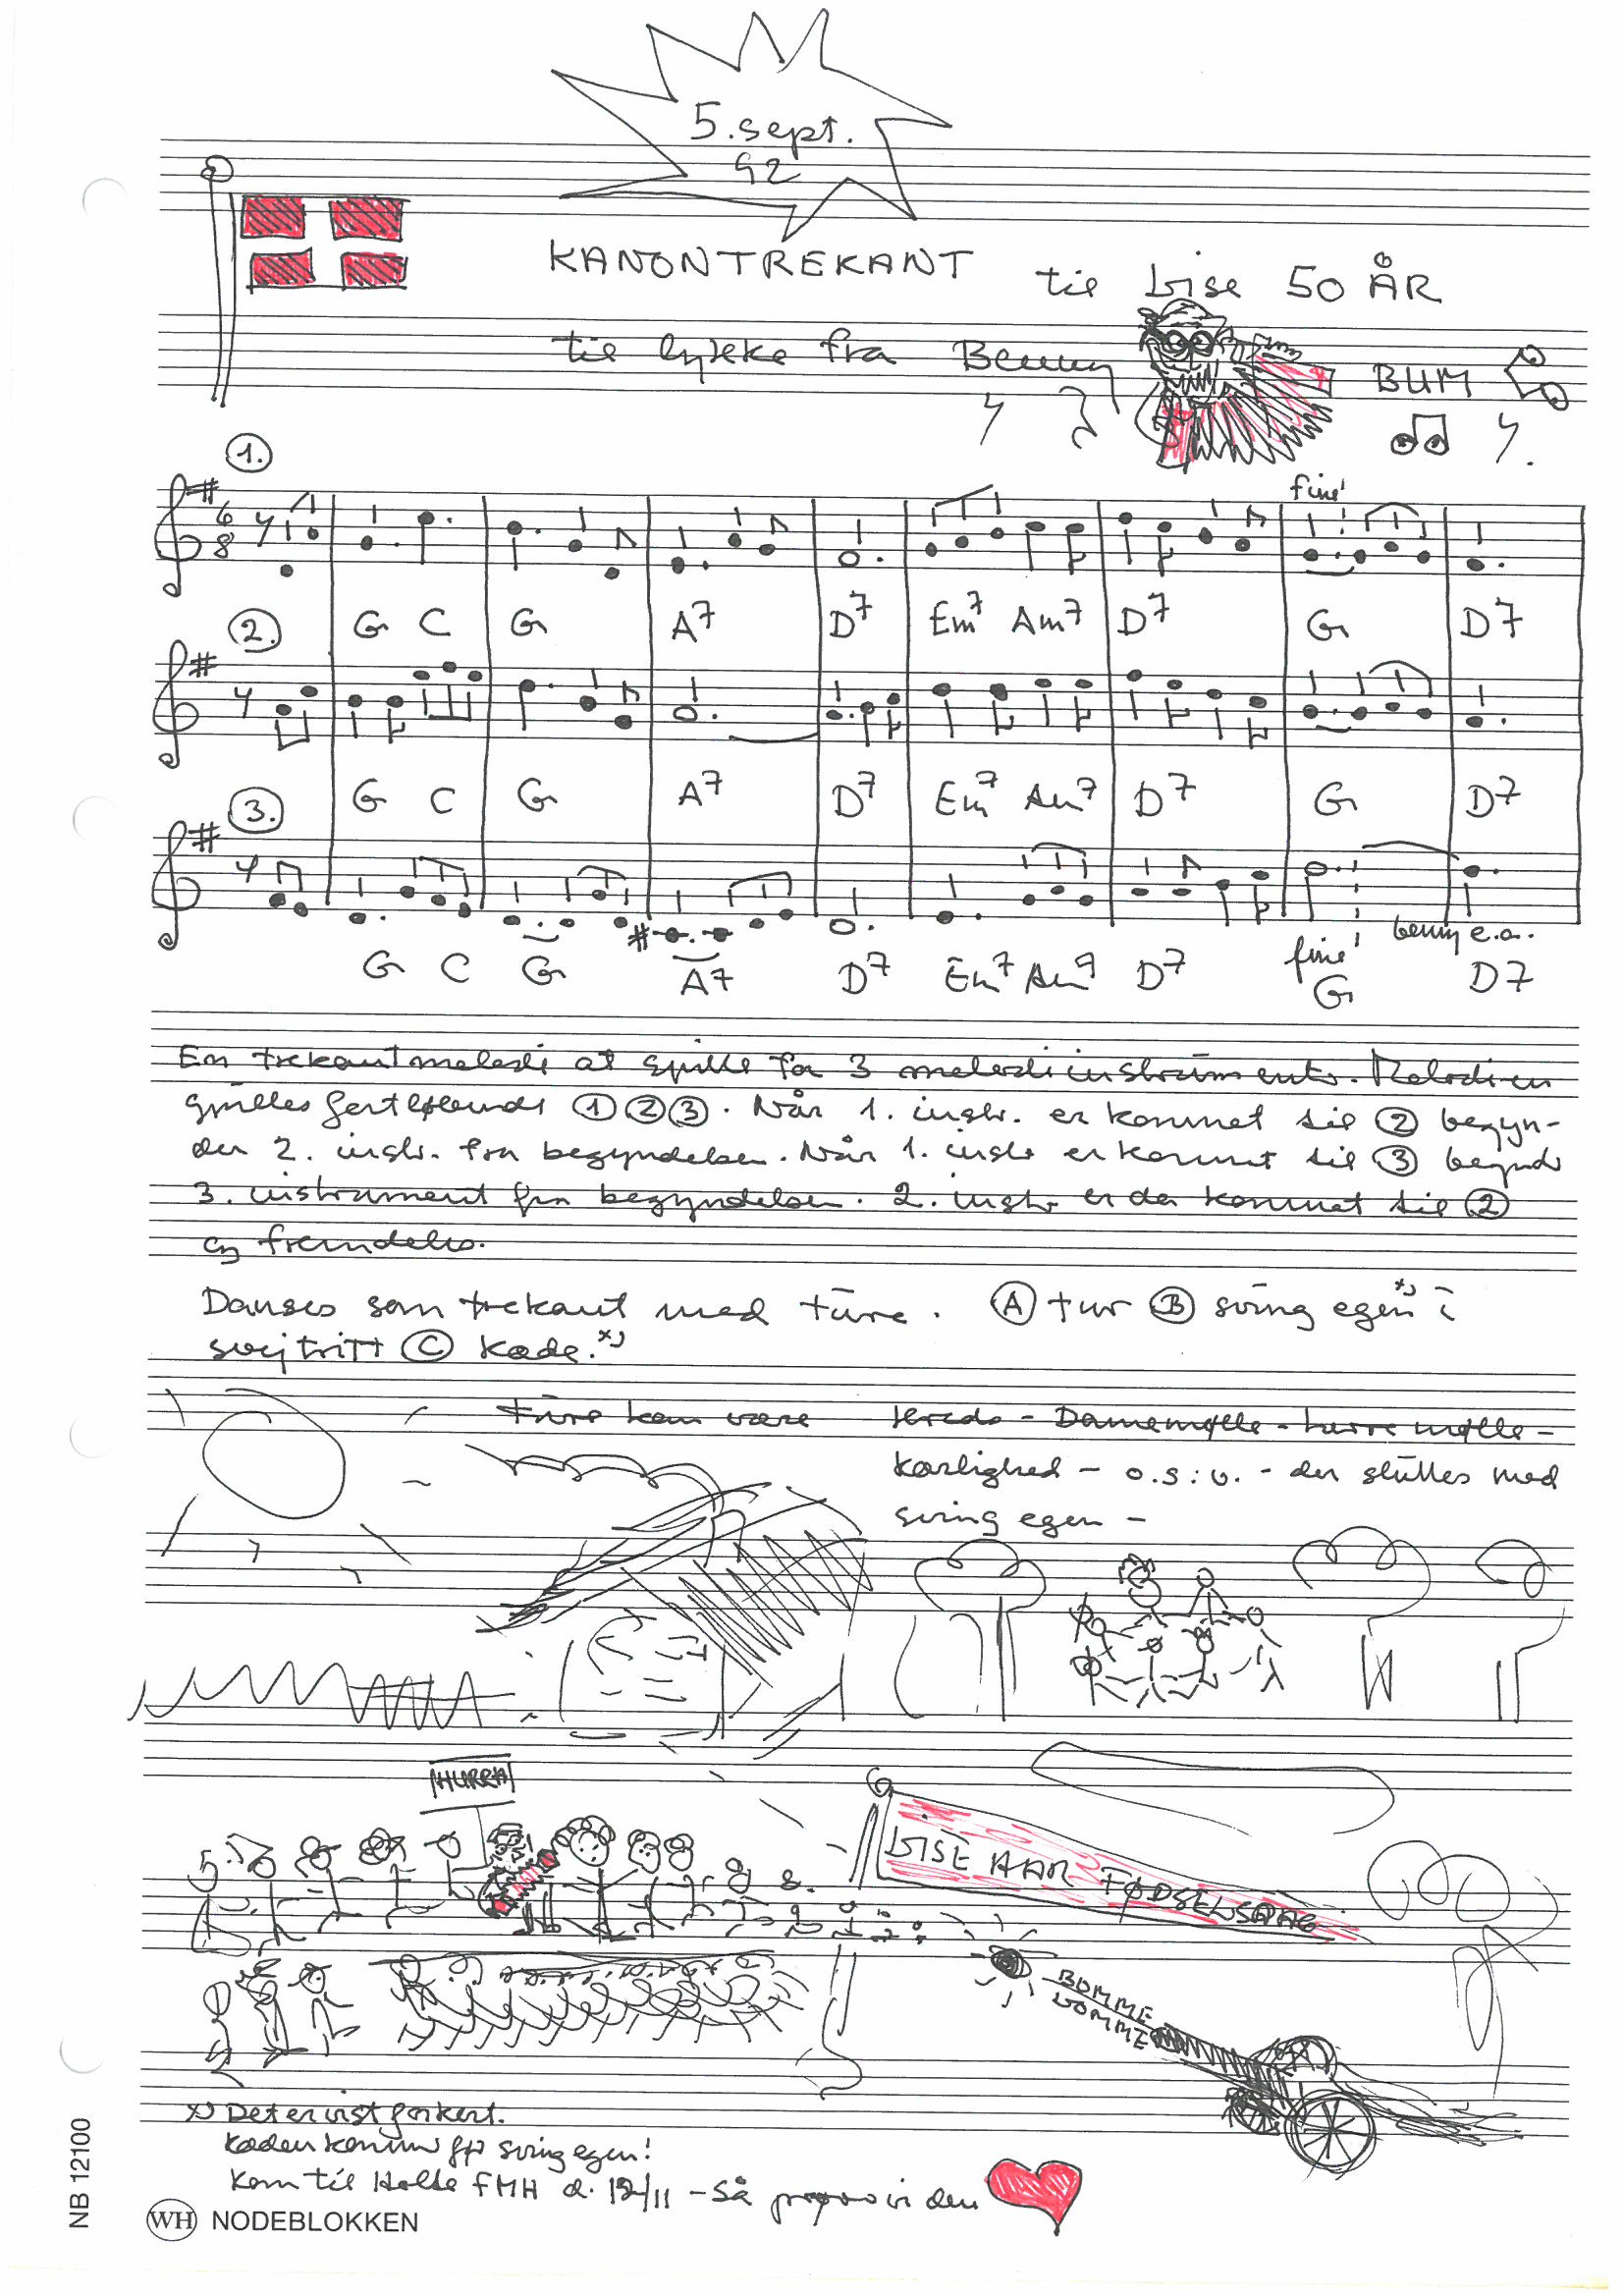 5. sept.
92
KANONTREKANT til Lise 50 ÅR
til lykke fra Benny
BUM
1.
6
8
fine
G C G A7 D7 Em7 Am7 D7 G D7
2.
G C G A7 D7 Em7 Am7 D7 G D7
3.
benny e.a.
G C G A7 D7 Em7 Am7 D7 fine G D7
En trekantmelodi at spille for 3 melodiinstrumenter. Melodien
spilles fortløbende ① ② ③. Når 1. instr. er kommet til ② begyn-
der 2. instr. fra begyndelsen. Når 1. instr er kommet til ③ begynder
3. instrument fra begyndelsen. 2. instr er da kommet til ②
og fremdeles.
Danses som trekant med ture. Ⓐ tur Ⓑ sving egen x) i
svejtritt Ⓒ kæde. x)
Ture kan være kreds - Damemølle - herre mølle -
kærlighed - o.s.v. - der sluttes med
sving egen -
HURRA
LISE HAR FØDSELSDAG
BOMME
LOMME
x) Det er vist forkert.
kæden kommer før sving egen!
Kom til Holte FMH d. 12/11 - så prøver vi den
NB 12100
WH NODEBLOKKEN